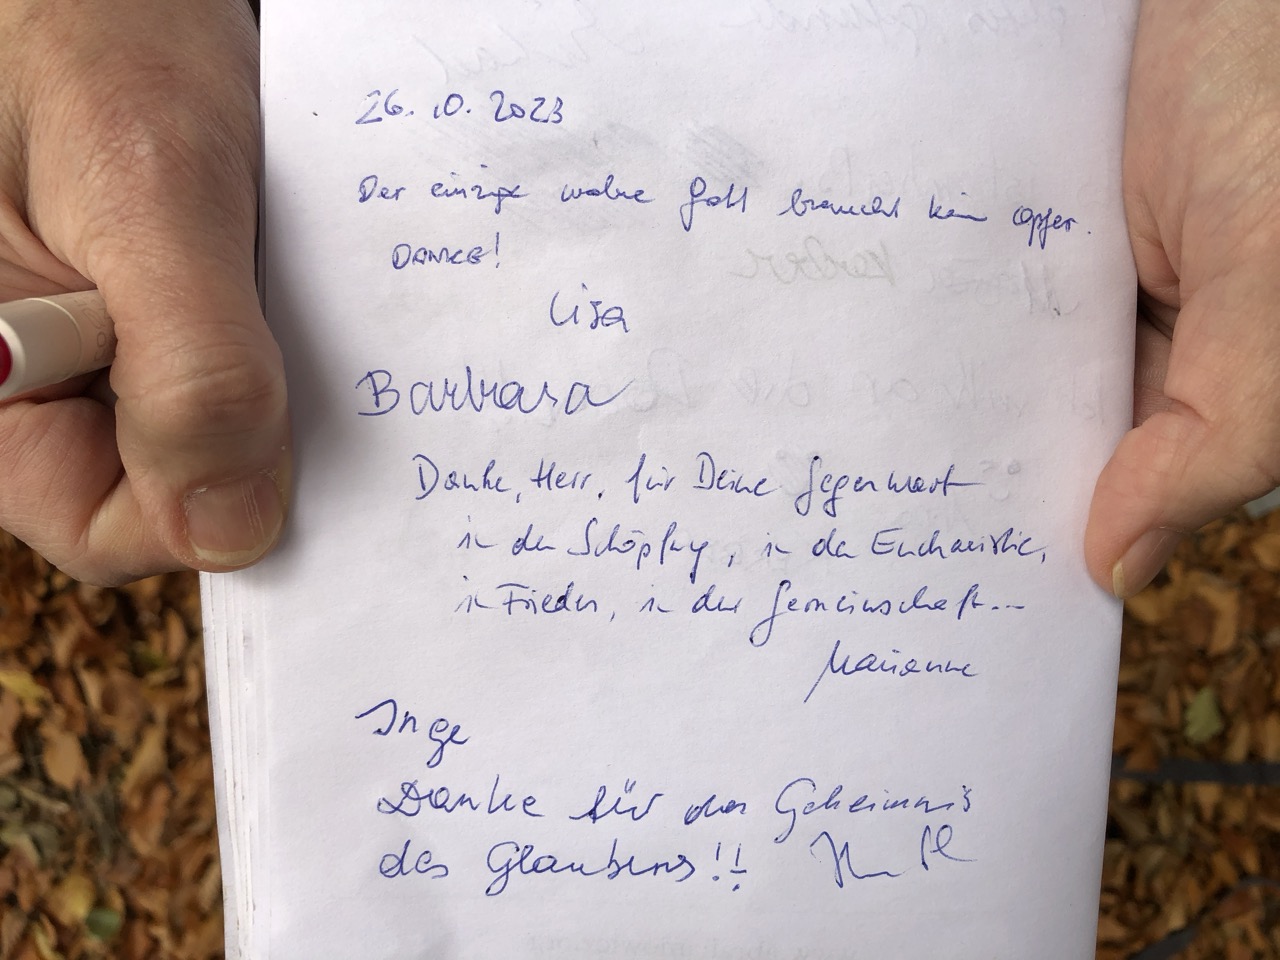 26.10.2023
Der einzige wahre Gott braucht kein Opfer.
DANKE!
Lisa
Barbara
Danke, Herr, für Deine Gegenwart
in der Schöpfung, in der Eucharistie,
in Frieden, in der Gemeinschaft...
Marianne
Inge
Danke für das Geheimnis
des Glaubens!!